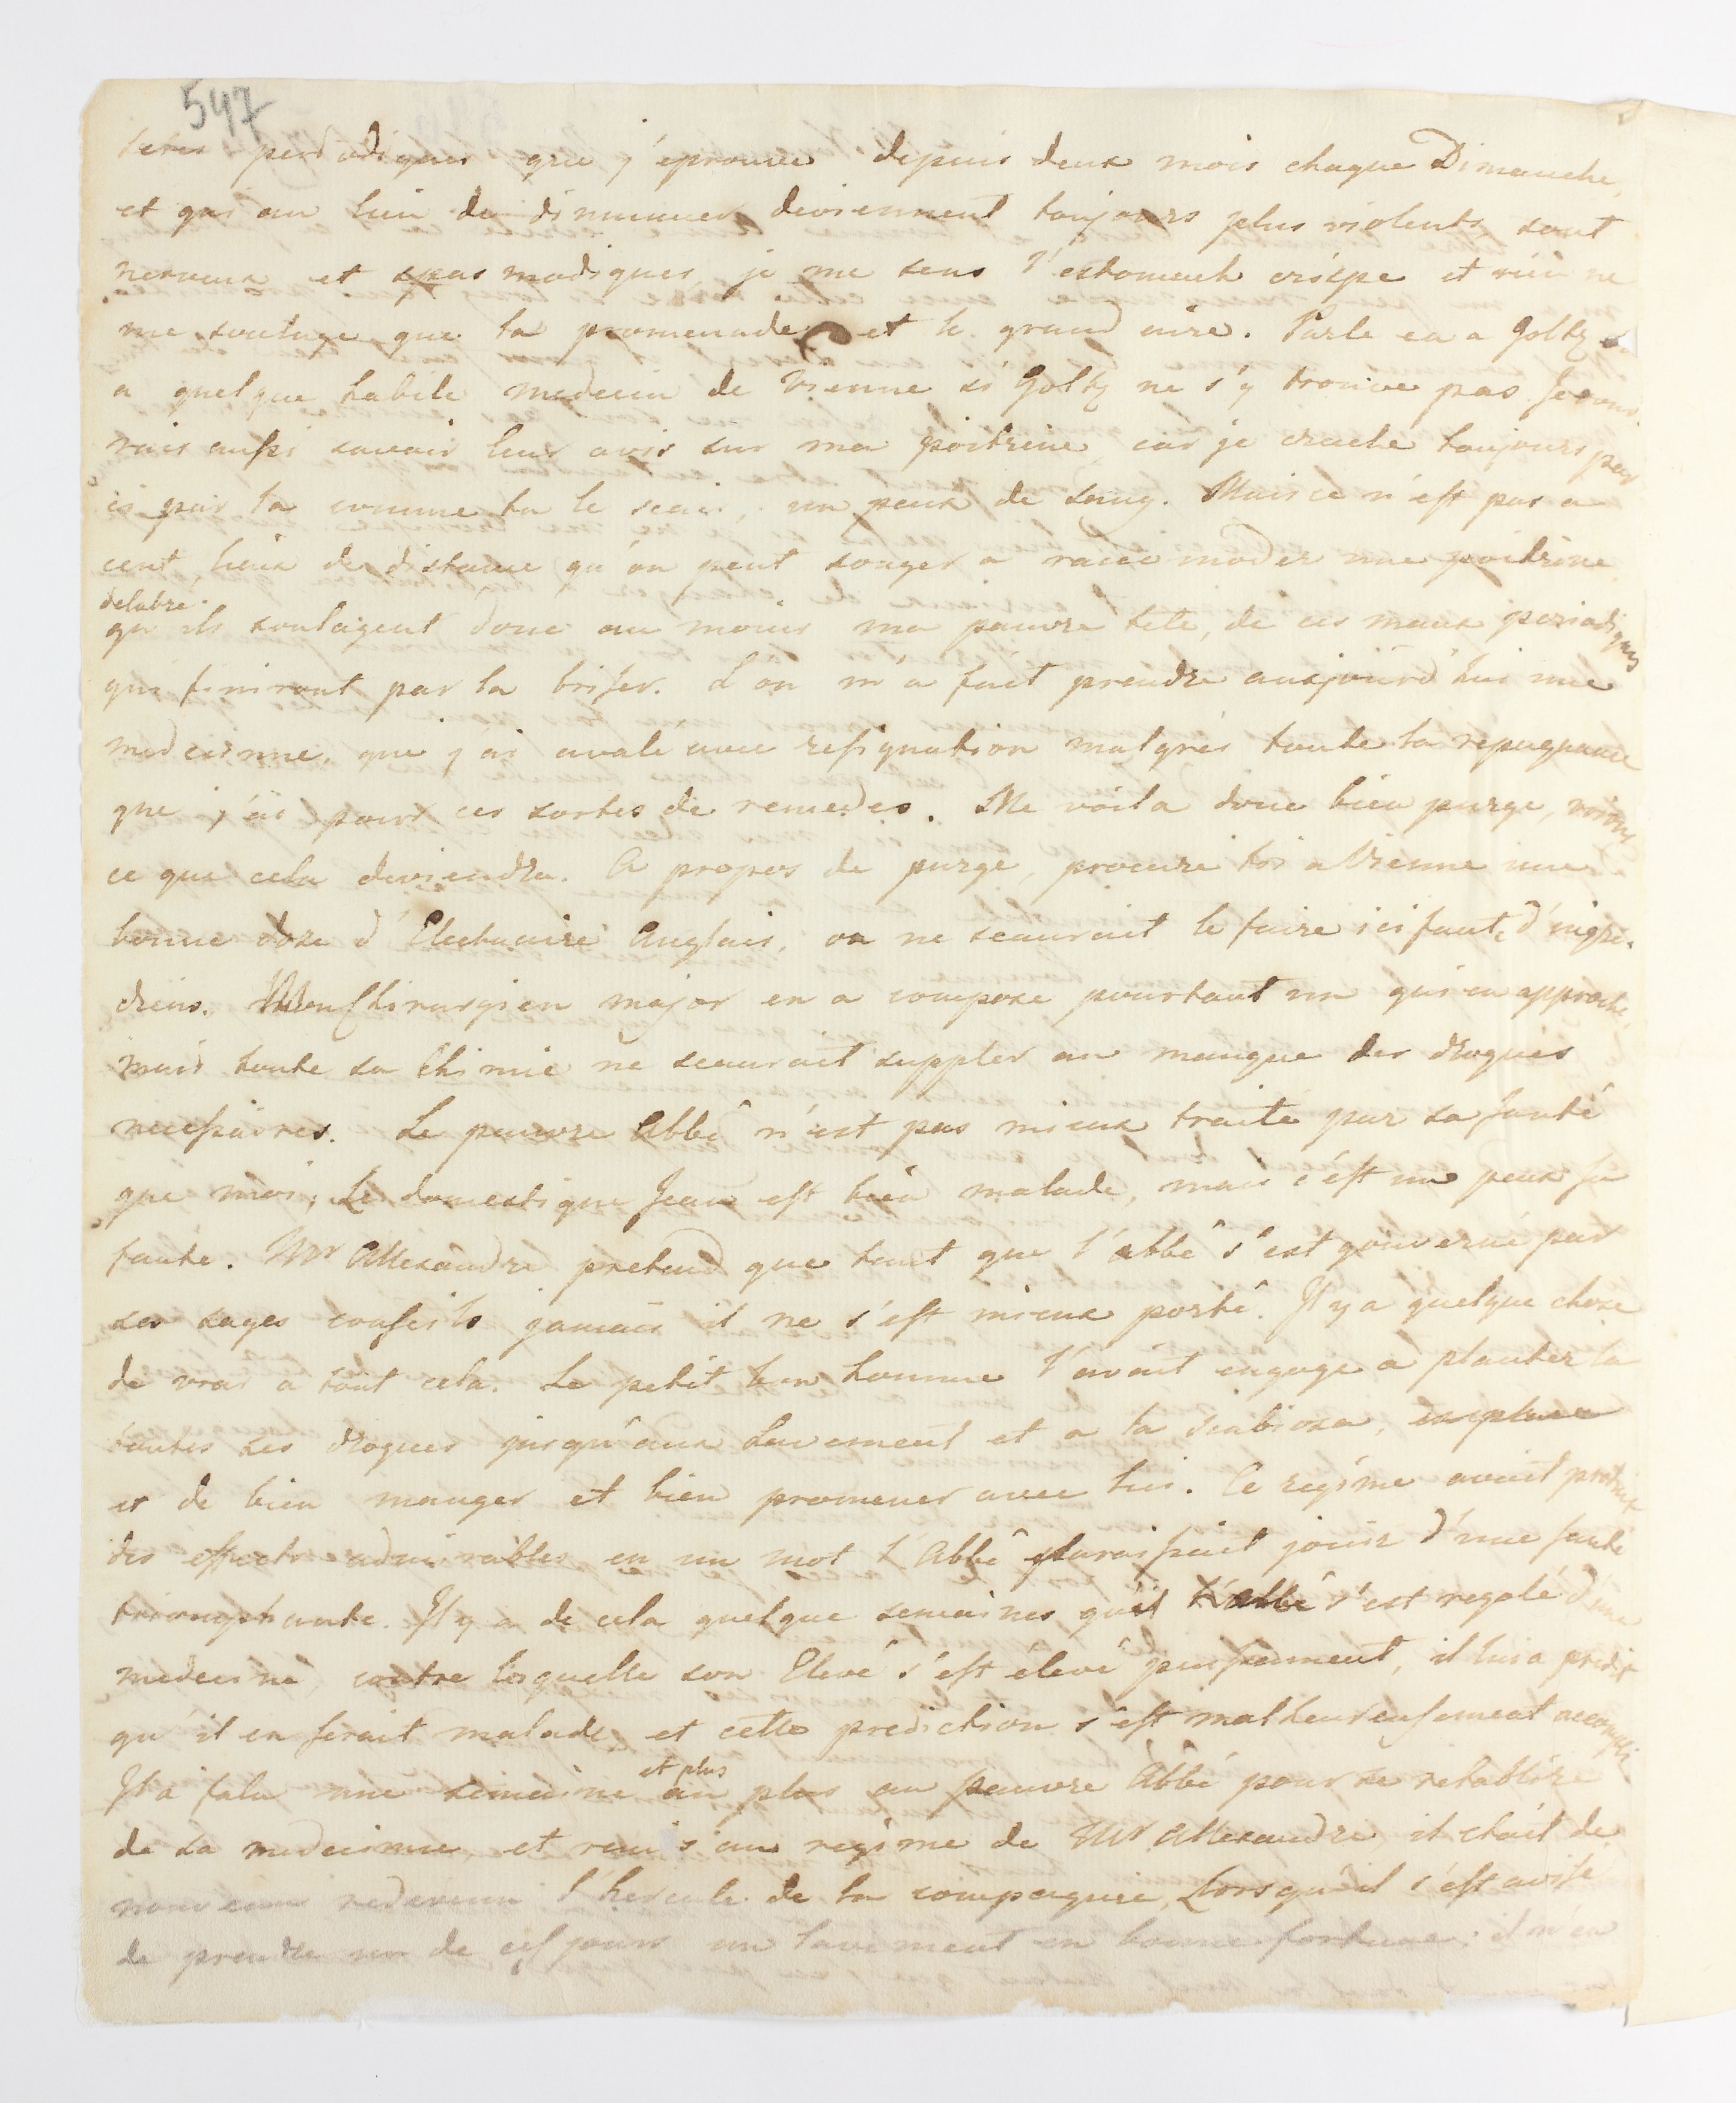 547
tetes periodiques que j'eprouve depuis deux mois chaque Dimanche,
et qui au lieu de diminuer deviennent toujours plus violents, sont
nerveux et spasmodiques, je me sens l'estomach crispe et rien ne
me soulage que la promenade et le grand aire. Parle en a Goltz
a quelque habile medecin de Vienne si Goltz ne s'y trouve pas. Je vou
rais aussi savoir leur avis sur ma poitrine, car je crache toujours par
ci par la comme tu le scais, un peux de sang. Mais ce n'est pas a
cent lieux de distance qu'on peut songer a raccomoder une poitrine
delabre.
qu'ils soulagent donc au moins ma pauvre tete, de ces maux periodiques
qui finiront par la briser. L'on m'a fait prendre aujourd'hui une
medecinne, que j'ai avalé avec resignation malgrés toute la repugnance
que j'ai pour ces sortes de remedes. Me voila donc bien purge, voions
ce que cela deviendra. A propos de purge, procure toi a Vienne une
bonne doze d'Electuaire Anglais, on ne scaurait le faire ici faute d'ingre-
diens. Mon Chirurgien major en a compose pourtant un qui en approche,
mais toute sa Chimie ne scaurait suppler au manque des drogues
necessaires. Le pauvre Abbê n'est pas mieux traite par sa santé
que moi; Le domestique Jean est bien malade, mais c'est un peux sa
faute. Mr Allexandre pretend que tant que l'abbê s'est gouverné par
ses sages conseils jamais il ne s'est mieux portê. Il y a quelque chose
de vrai a tout cela. Le petit bon homme l'avait engage a planter la
toutes ses drogues jusqu'aux Lavement et a la scabiosa,
et de bien manger et bien promener avec lui. Ce regime avait produit
des effects admirables en un mot l'Abbê paraissait jouir d'une santé
triomphante. Il y a de cela quelque semaines qu'il l'abbê s'est regalé d'une
medecine, contre lesquelle son Elevê s'est élevê puissament, il lui a predit
qu'il en serait malade, et cette prediction s'est malheureusement accompli
et plus
Il a falu une semaine au plus au pauvre Abbé pour se retablire
de sa medecinne, et remis au regime de Mr Allexandre, il etait de
nouveau redevenu l'hercule de la compagnie, Lorsqu'il s'est avise
de prendre un de ces jours un lavement en bonne fortune; il n'en